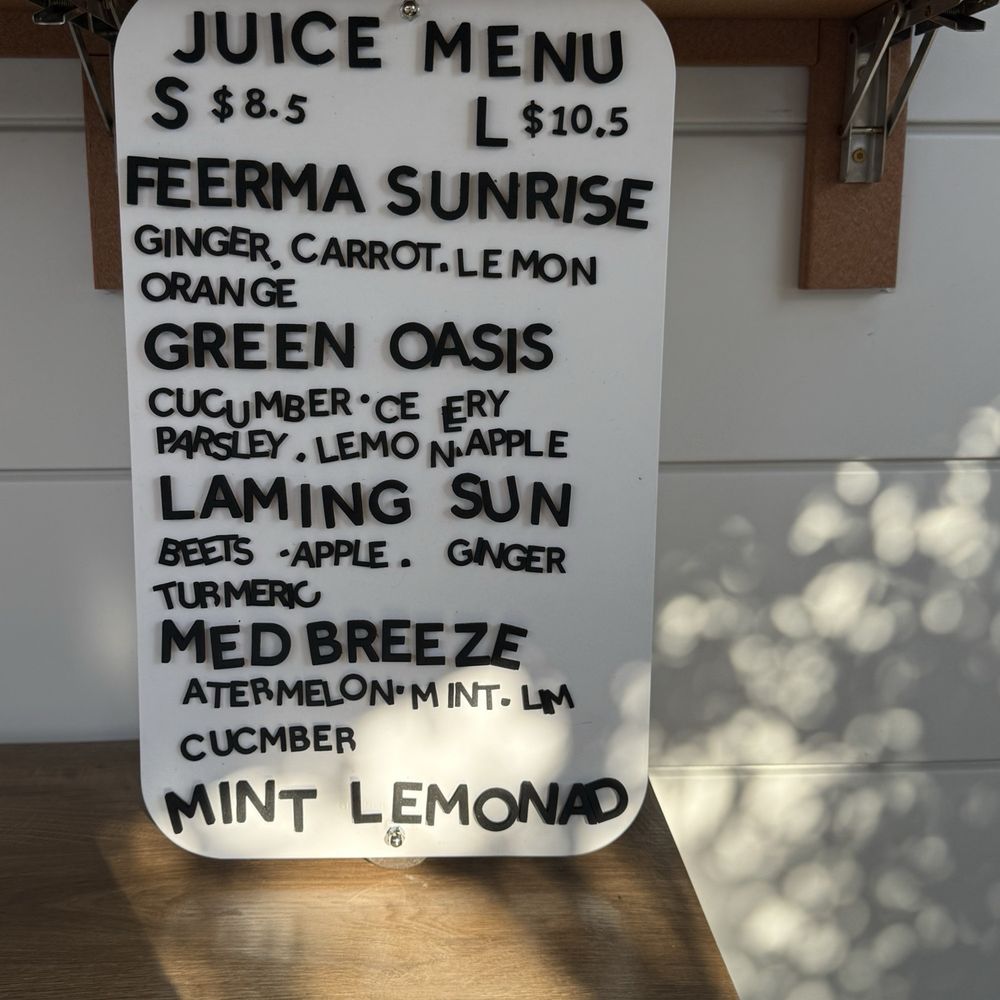 JUICE MENU
S $8.5 L $10.5
FEERMA SUNRISE
GINGER, CARROT. LEMON
ORANGE
GREEN OASIS
CUCUMBER · CE ERY
PARSLEY . LEMON . APPLE
LAMING SUN
BEETS · APPLE . GINGER
TURMERIC
MED BREEZE
ATERMELON · MINT . LIM
CUCMBER
MINT LEMONAD